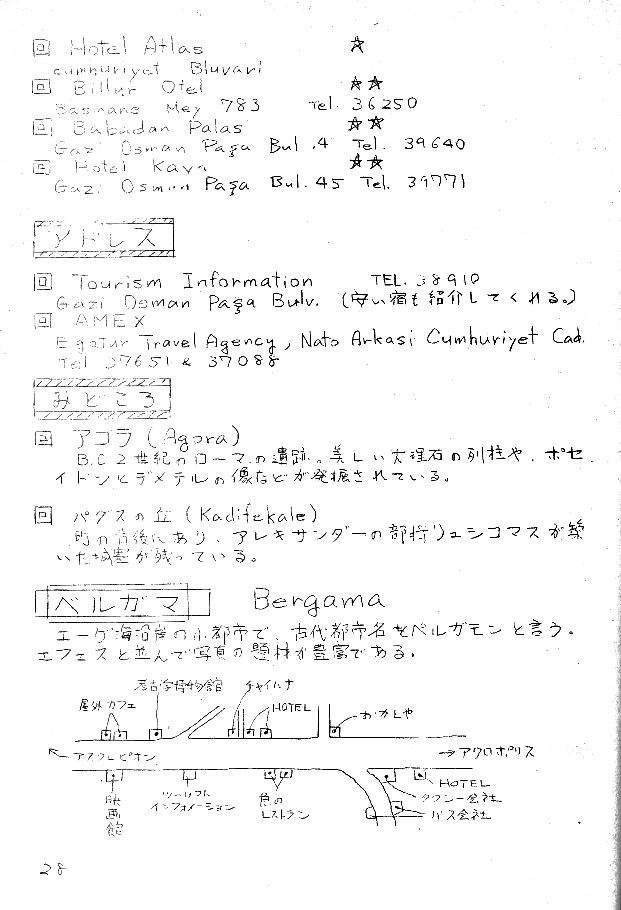 回 Hotel Atlas ☆
cumhuriyet Bluvari
回 Billur Otel ☆☆
Basmane Mey 783 Tel. 36250
回 Babadan Palas ☆☆
Gazi Osman Paşa Bul .4 Tel. 39640
回 Hotel Kaya ☆☆
Gazi Osman Paşa Bul. 45 Tel. 39771
アドレス
回 Tourism Information TEL. 38910
Gazi Osman Paşa Bulv. (安い宿も紹介してくれる。)
回 AMEX
Egetur Travel Agency, Nato Arkasi Cumhuriyet Cad.
Tel 37651 & 37088
みどころ
回 アゴラ (Agora)
B.C 2世紀のローマの遺跡。美しい大理石の列柱や、ポセ
イドンとデメテルの像などが発掘されている。
回 パグスの丘 (Kadifekale)
町の背後にあり、アレキサンダーの部将リュシコマスが築
いた城塞が残っている。
ベルガマ Bergama
エーゲ海沿岸の小都市で、古代都市名をペルガモンと言う。
エフェスと並んで写真の題材が豊富である。
考古学博物館 チャイハナ
屋外カフェ HOTEL おかしや
←アスクレピオン →アクロポリス
映画館 ツーリスト インフォメーション 魚の レストラン HOTEL
タクシー会社
バス会社
28